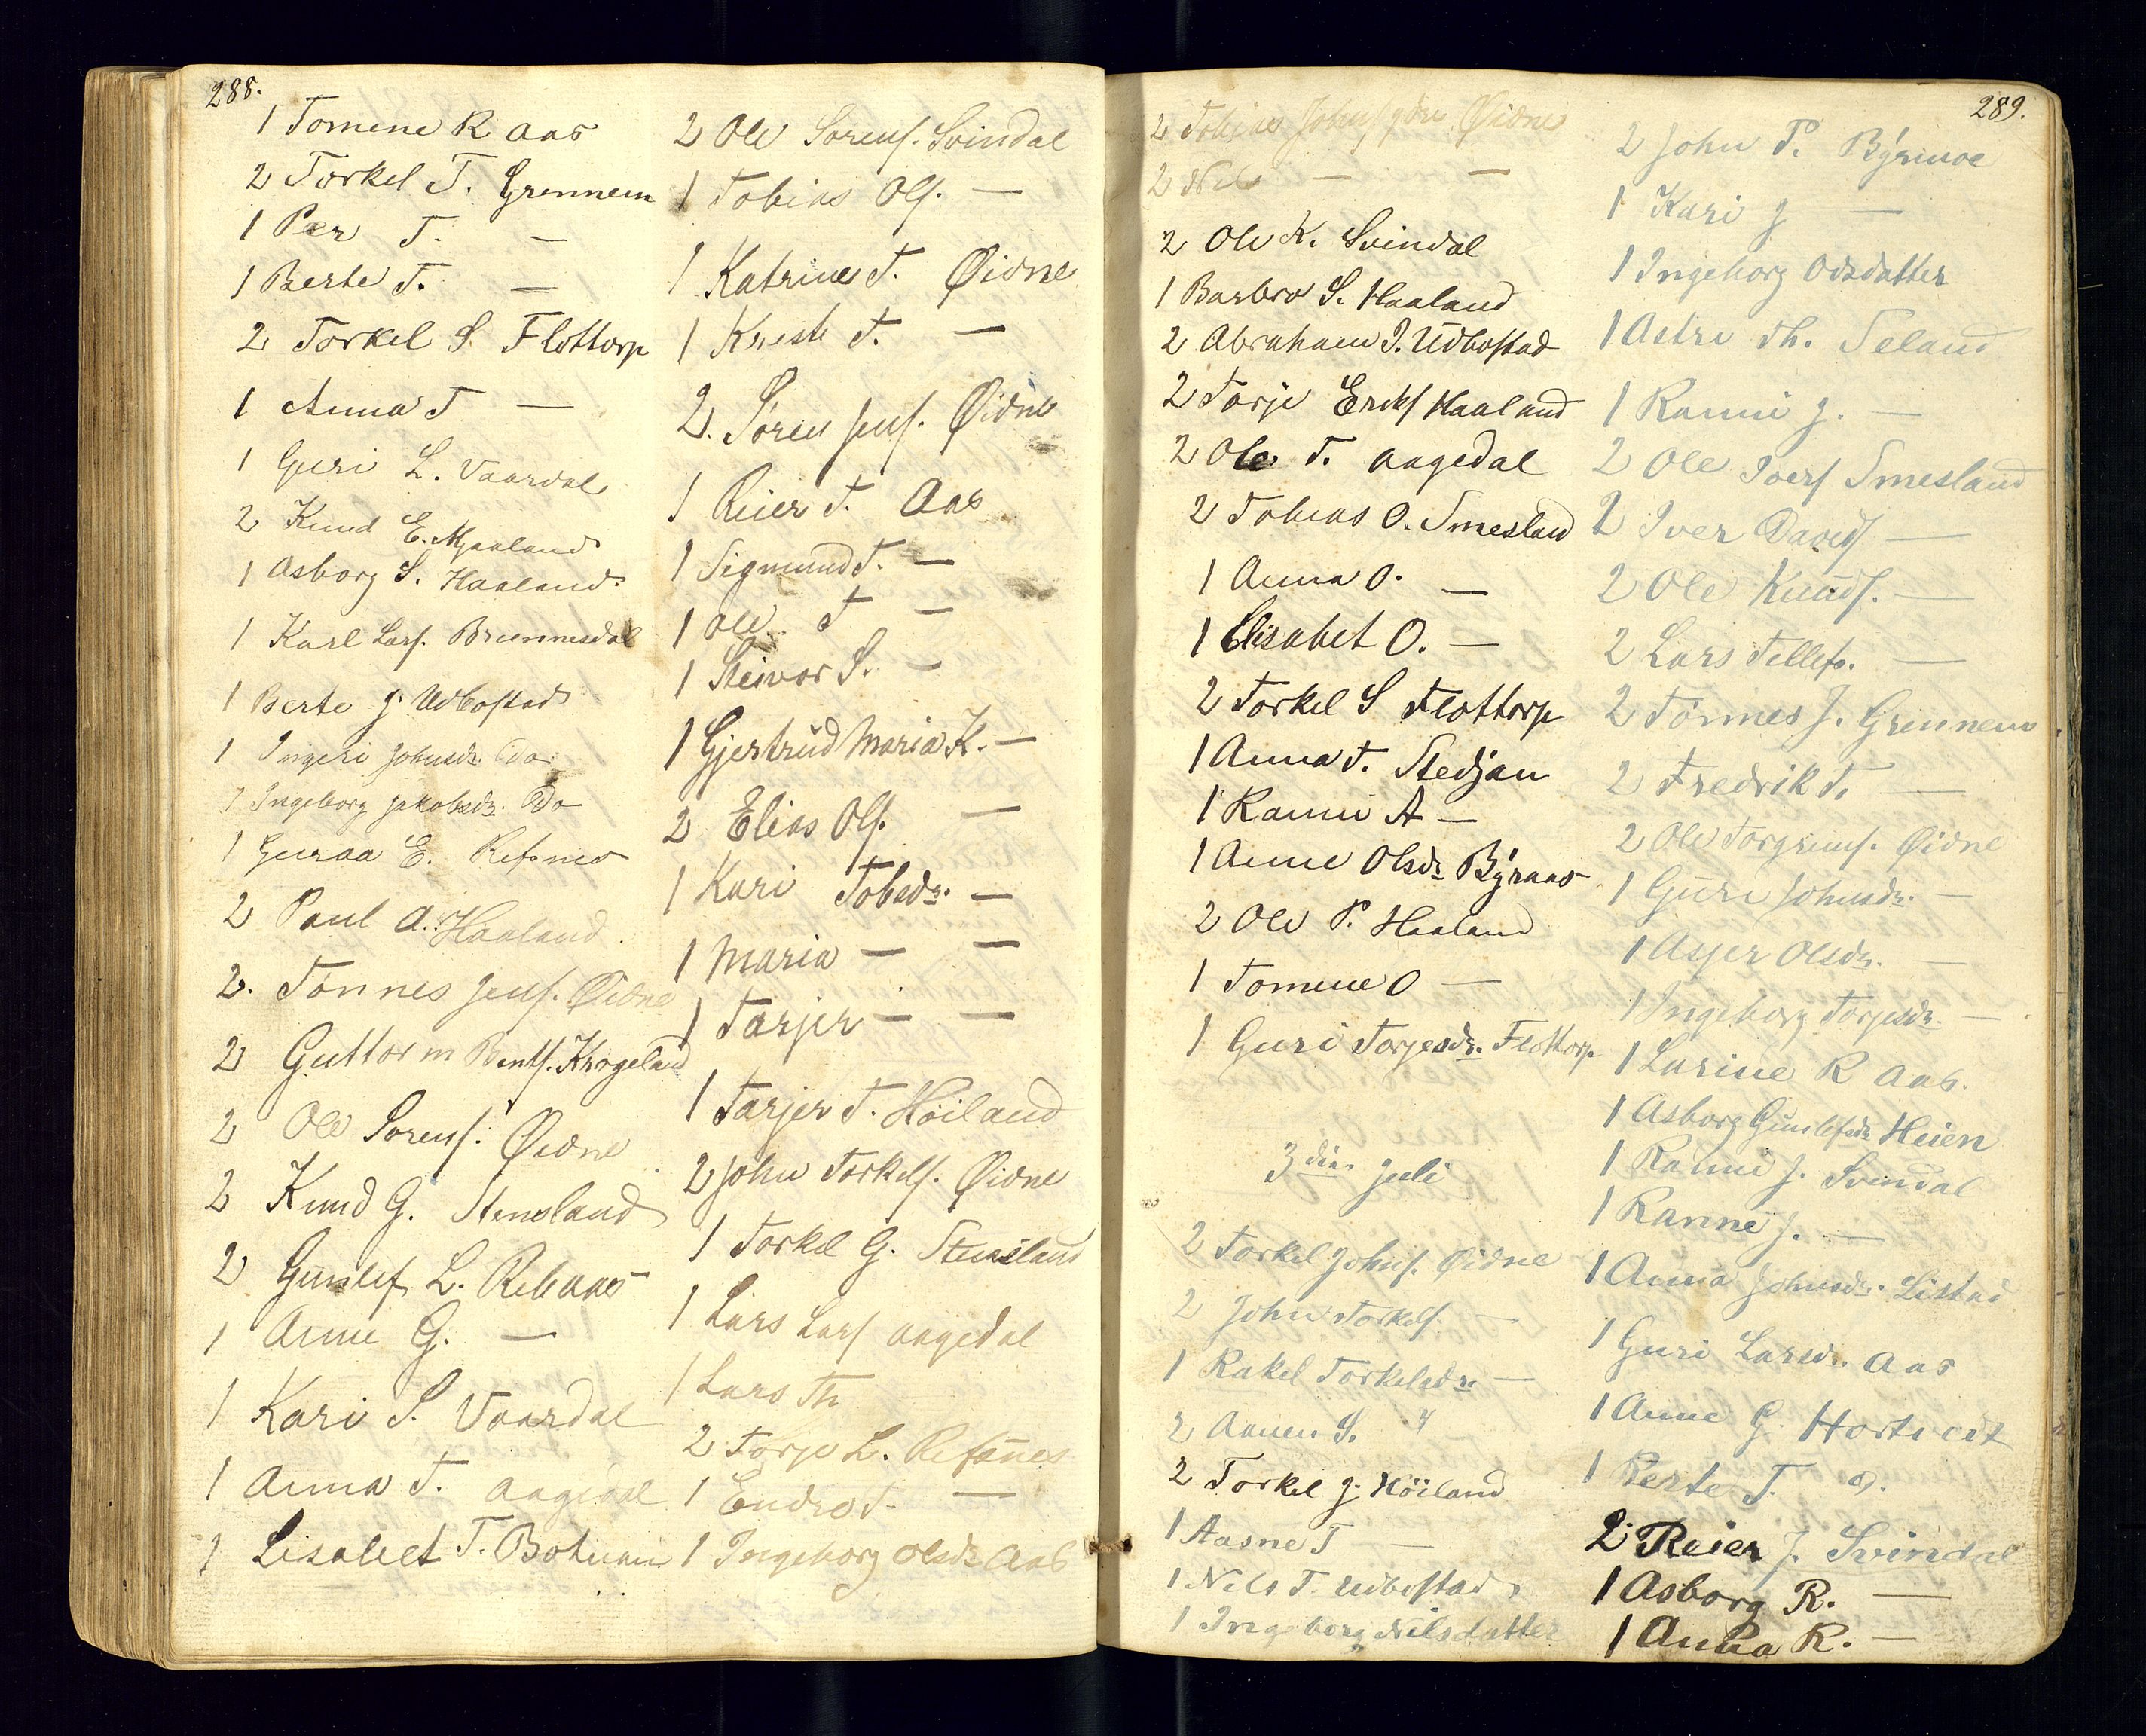 288.
1 Tomine R Aas
2 Torkel T. Grennem
1 Per T. —
1 Berte T. —
2 Torkel S. Flottorp
1 Anna T —
1 Guri L. Vaardal
2 Knud E. Mjaaland
1 Asborg S. Haaland
1 Karl Larss. Brunnesdal
1 Berte J. Udbostad
1 Ingeri Johnsdr. Do
1 Ingeborg Jakobsdr. Do
1 Guroa E. Refsnes
2 Paul A. Haaland
2. Tønnes Jens. Øidne
2 Guttorm Bents. Krogeland
2 Ole Sorens. Øidne
2 Knud G. Stensland
2 Gunlef L. Rebaas
1 Anne G. —
1 Kari S. Vaardal
1 Anna T. Aagedal
1 Lisabet T. Botnan
2 Ole Sorens. Svindal
1 Tobias Ols. —
1 Katrine T. Øidne
1 Kresti T. —
2. Søren Jens. Øidne
1 Reier T. Aas
1 Sigmund T. —
1 Ole T —
1 Steivor S. —
1 Gjertrud Maria K. —
2 Elias Ols. —
1 Kari Tobsdr. —
1 Maria — —
1 Tarjer — —
1 Tarjer T. Höiland
2 John Torkels. Øidne
1 Torkel G. Stensland
1 Lars Lars Aagedal
1 Lars Th
2 Torje L. Refsnes
1 Endre T. —
1 Ingeborg Olsdr Aas
289.
2 Tobias Johns Øidne
2 Nils — —
2 Ole K. Svindal
1 Barbro S. Haaland
2 Abraham J. Udbostad
2 Torje Eriks Haaland
2 Ole T. Aagedal
2 Tobias O. Smesland
1 Anna O. —
1 Elisabet O. —
2 Torkel S Flottorp
1 Anna T. Stedjan
1 Ranni A —
1 Anne Olsdr Byraas
2 Ole P. Haaland
1 Tomine O —
1 Guri Torjesdr. Flottorp
3die Juli
2 Torkel Johns. Øidne
2 John Torkels. —
1 Rakel Torkelsdr. —
2 Aanen S.
2 Torkel J. Höiland
1 Aasne T —
1 Nils T. Udbostad
1 Ingeborg Nilsdatter
2 John P. Byrimoe
1 Kari J —
1 Ingeborg Odsdatter
1 Astri Th. Seland
1 Ranni J. —
2 Ole Ivers Smesland
2 Iver Davids —
2 Ole Knuds. —
2 Lars Tellefs. —
2 Tönnes J. Grennem
2 Fredrik T. —
2 Ole Torgrims. Øidne
1 Guri Johnsdr. —
1 Asjer Olsdr. —
1 Ingeborg Torjesdr. —
1 Larine R Aas.
1 Asborg Gunlefsdr Heien
1 Ranni J. Svindal
1 Ranne J. —
1 Anna Johnsdr. Listad
1 Guri Larsdr. Aas
1 Anne G. Hortvedt
1 Berte T.
2 Reier J. Svindal
1 Asborg R. —
1 Anna R. —